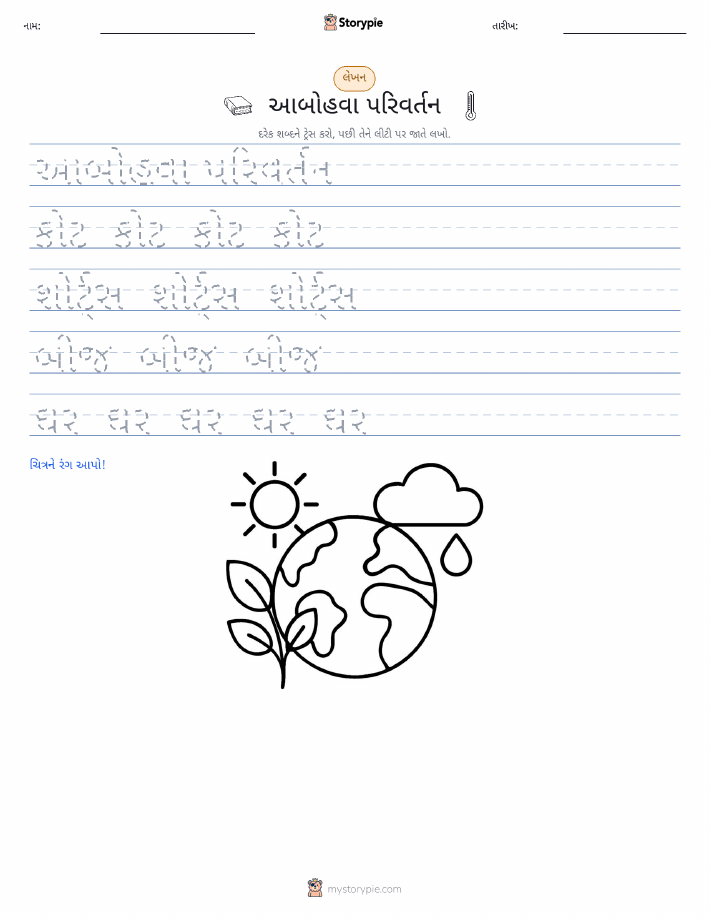 નામ:
Storypie
તારીખ:
લેખન
આબોહવા પરિવર્તન
દરેક શબ્દને ટ્રેસ કરો, પછી તેને લીટી પર જાતે લખો.
આબોહવા પરિવર્તન
કોટ કોટ કોટ કોટ
શોર્ટ્સ શોર્ટ્સ શોર્ટ્સ
બીજ બીજ બીજ
ઘર ઘર ઘર ઘર ઘર
ચિત્રને રંગ આપો!
mystorypie.com